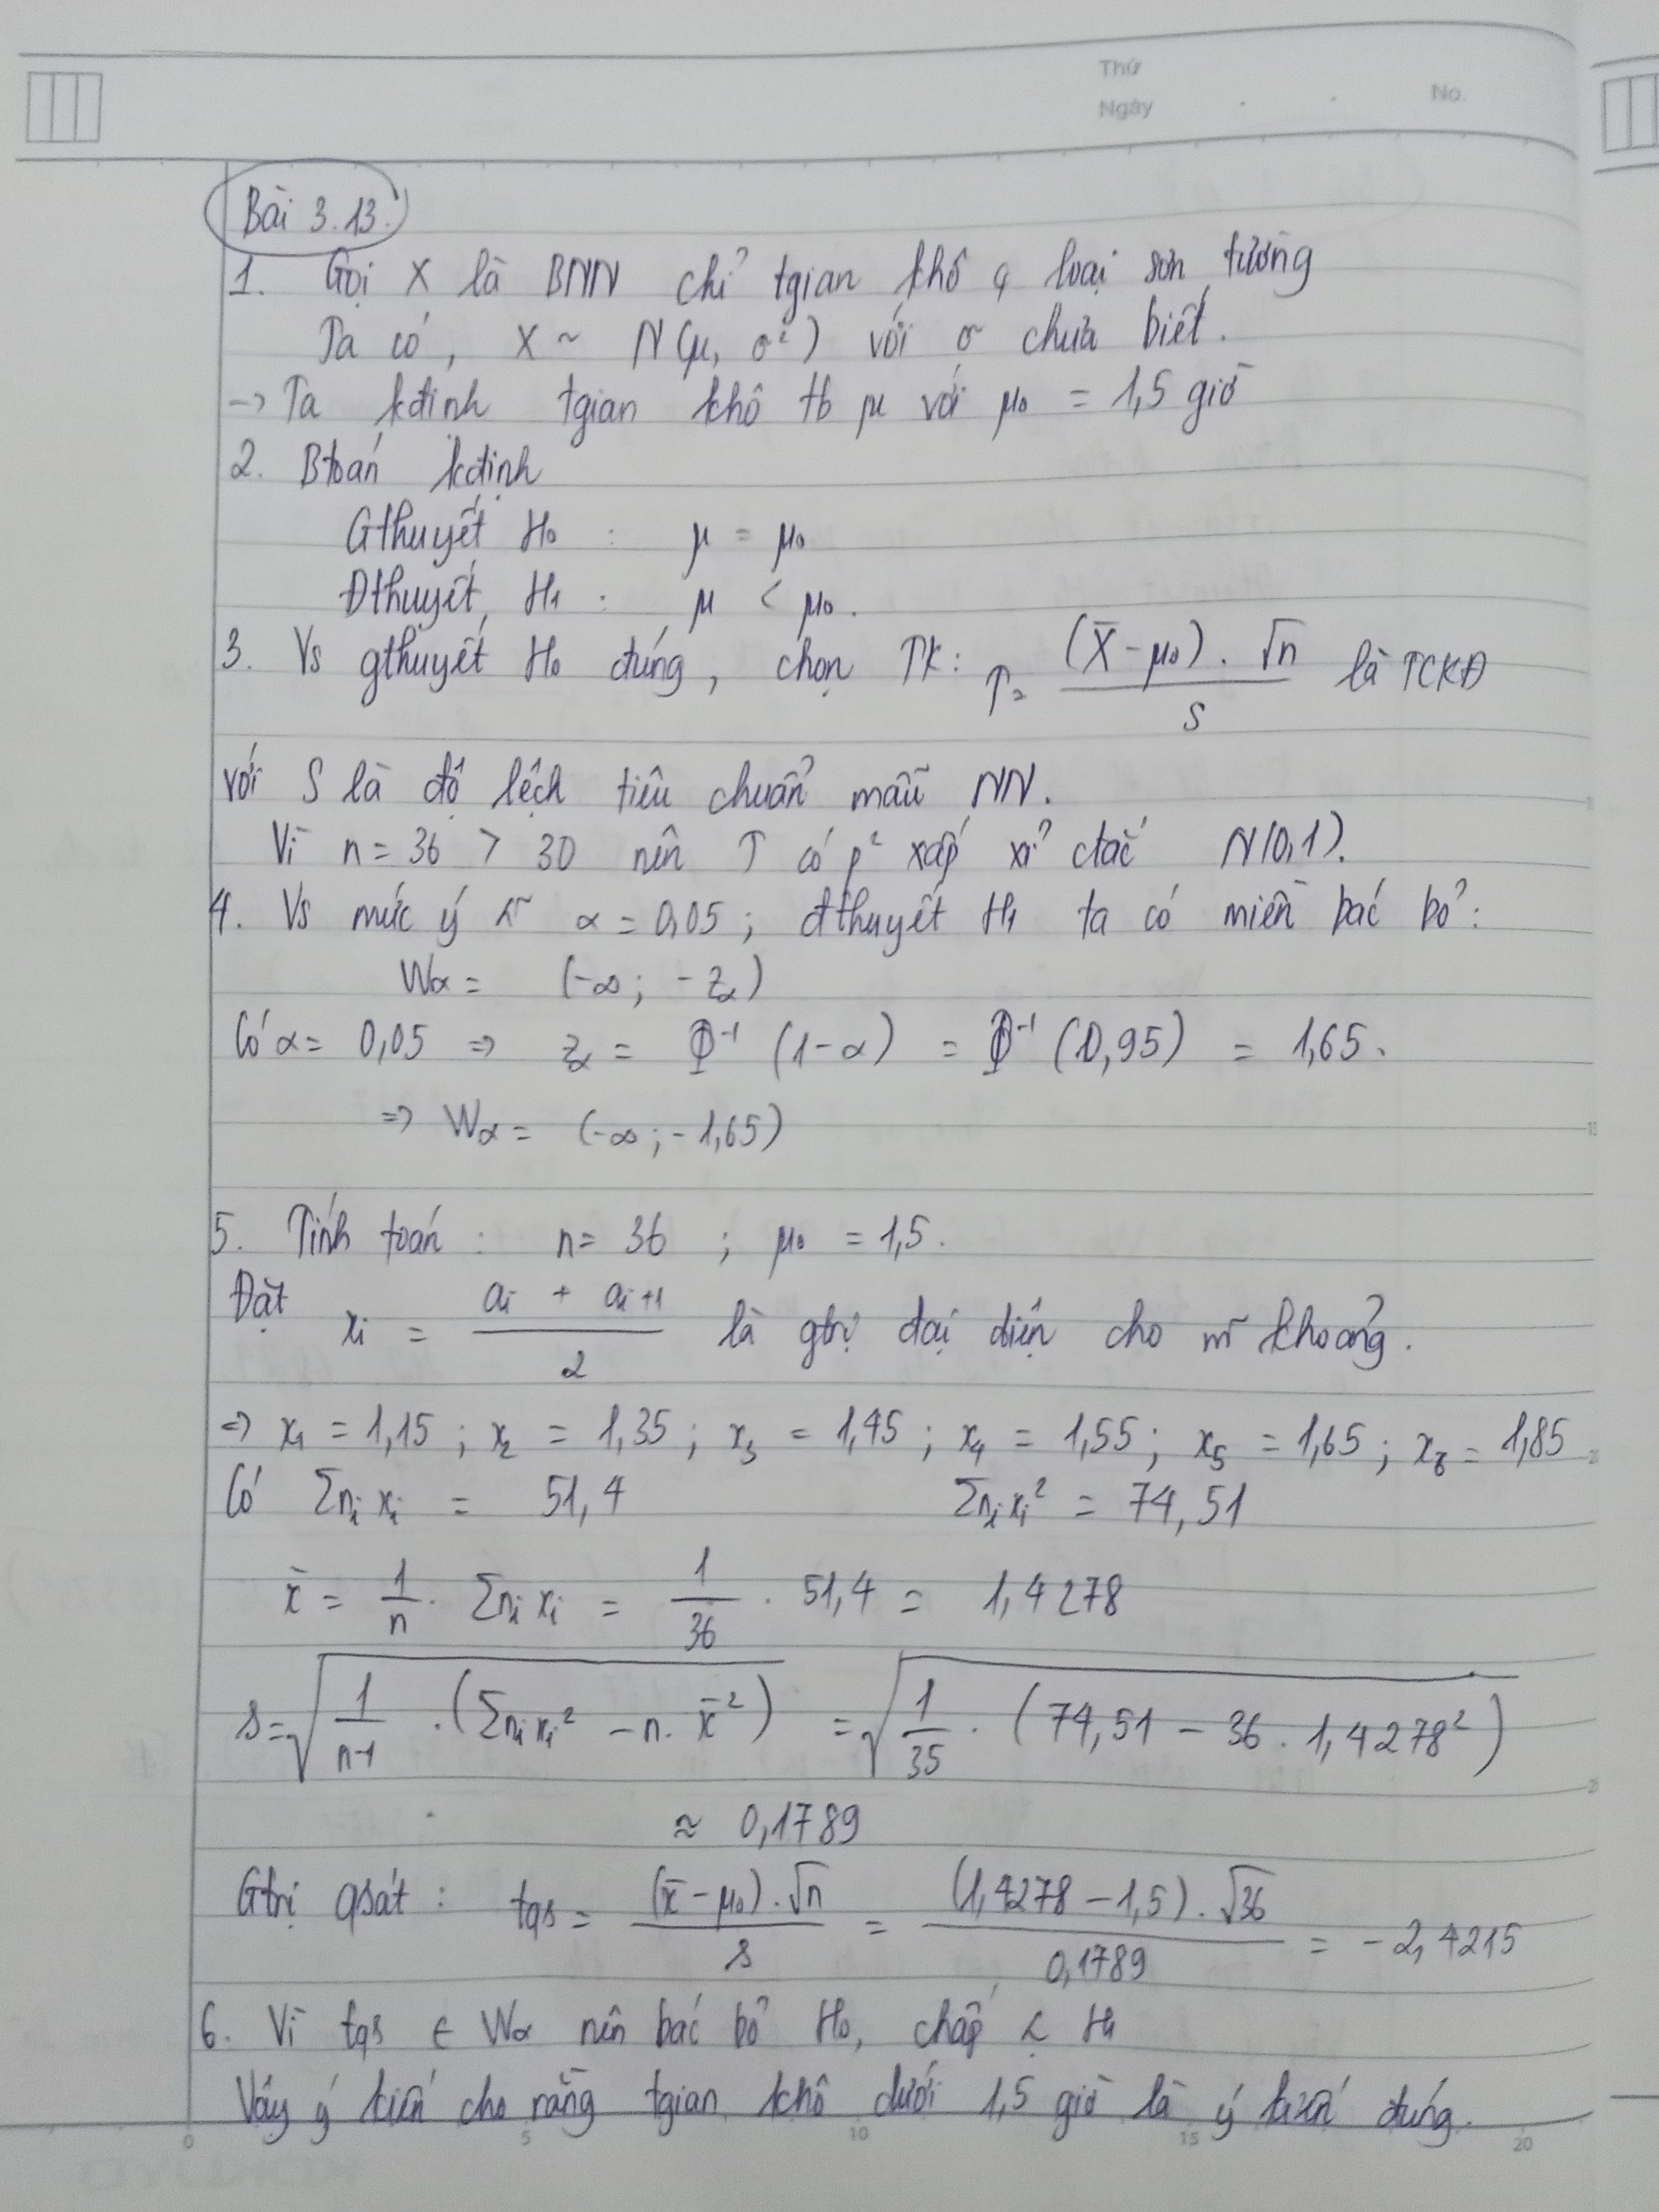 Thứ
Ngày
No.
Bài 3.13.
1. Gọi X là BNN chỉ tgian khô of loại sơn tường
Ta có, X ~ N(μ, σ²) với σ chưa biết.
→ Ta kđịnh tgian khô tb μ với μ₀ = 1,5 giờ
2. Btoán kđịnh
Gthuyết H₀ : μ = μ₀
Đthuyết H₁ : μ < μ₀.
3. Vs gthuyết H₀ đúng, chọn TK: T = (X̄ - μ₀).√n / S là TCKĐ
với S là độ lệch tiêu chuẩn mẫu NN.
Vì n = 36 > 30 nên T có p² xấp xỉ ctắc N(0,1).
4. Vs mức ý α = 0,05 ; đthuyết H₁ ta có miền bác bỏ :
Wα = (-∞ ; - zα)
Có α = 0,05 ⇒ zα = Φ⁻¹ (1-α) = Φ⁻¹ (0,95) = 1,65.
⇒ Wα = (-∞ ; - 1,65)
5. Tính toán : n = 36 ; μ₀ = 1,5.
Đặt xᵢ = (aᵢ + aᵢ₊₁) / 2 là gtrị đại diện cho khoảng.
⇒ x₁ = 1,15 ; x₂ = 1,35 ; x₃ = 1,45 ; x₄ = 1,55 ; x₅ = 1,65 ; x₆ = 1,85
Có Σnᵢxᵢ = 51,4 Σnᵢxᵢ² = 74,51
x̄ = 1/n . Σnᵢxᵢ = 1/36 . 51,4 = 1,4278
s = √(1/(n-1) . (Σnᵢxᵢ² - n. x̄²)) = √(1/35 . (74,51 - 36 . 1,4278²))
≈ 0,1789
Gtrị qsát : tqs = (x̄ - μ₀).√n / s = (1,4278 - 1,5).√36 / 0,1789 = - 2,4215
6. Vì tqs ∈ Wα nên bác bỏ H₀, chấp H₁
Vậy ý kiến cho rằng tgian khô dưới 1,5 giờ là ý kiến đúng.
0 5 10 15 20